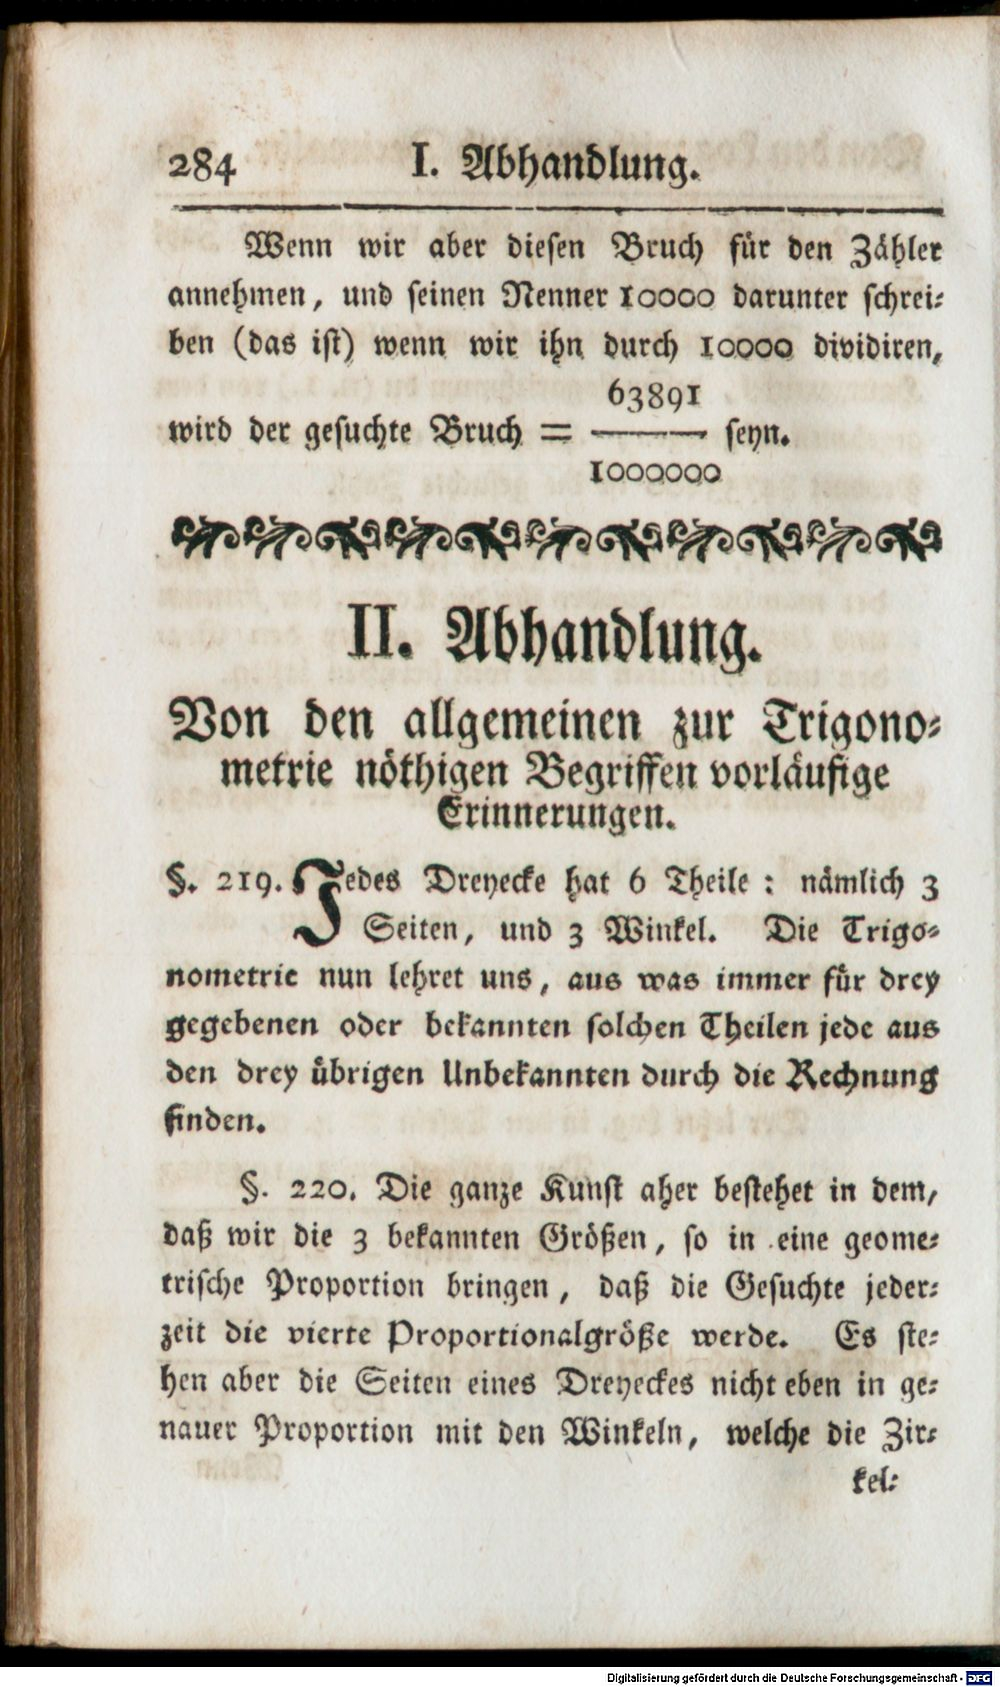 284 I. Abhandlung.
Wenn wir aber diesen Bruch für den Zähler
annehmen, und seinen Nenner 10000 darunter schrei⸗
ben (das ist) wenn wir ihn durch 10000 dividiren,
63891
wird der gesuchte Bruch = ——— seyn.
1000000
II. Abhandlung.
Von den allgemeinen zur Trigono⸗
metrie nöthigen Begriffen vorläufige
Erinnerungen.
§. 219. Jedes Dreyecke hat 6 Theile : nämlich 3
Seiten, und 3 Winkel. Die Trigo⸗
nometrie nun lehret uns, aus was immer für drey
gegebenen oder bekannten solchen Theilen jede aus
den drey übrigen Unbekannten durch die Rechnung
finden.
§. 220. Die ganze Kunst aher bestehet in dem,
daß wir die 3 bekannten Größen, so in eine geome⸗
trische Proportion bringen, daß die Gesuchte jeder⸗
zeit die vierte Proportionalgröße werde. Es ste⸗
hen aber die Seiten eines Dreyeckes nicht eben in ge⸗
nauer Proportion mit den Winkeln, welche die Zir⸗
kel⸗
Digitalisierung gefördert durch die Deutsche Forschungsgemeinschaft - DFG